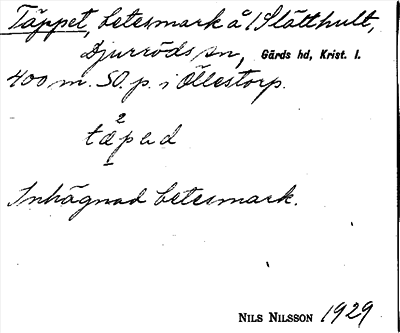 Täppet, betesmark å 1 Slätthult,
Djurröds sn, Gärds hd, Krist. l.
400 m. SO. p. i Ollestorp.
Inhägnad betesmark.
NILS NILSSON 1929